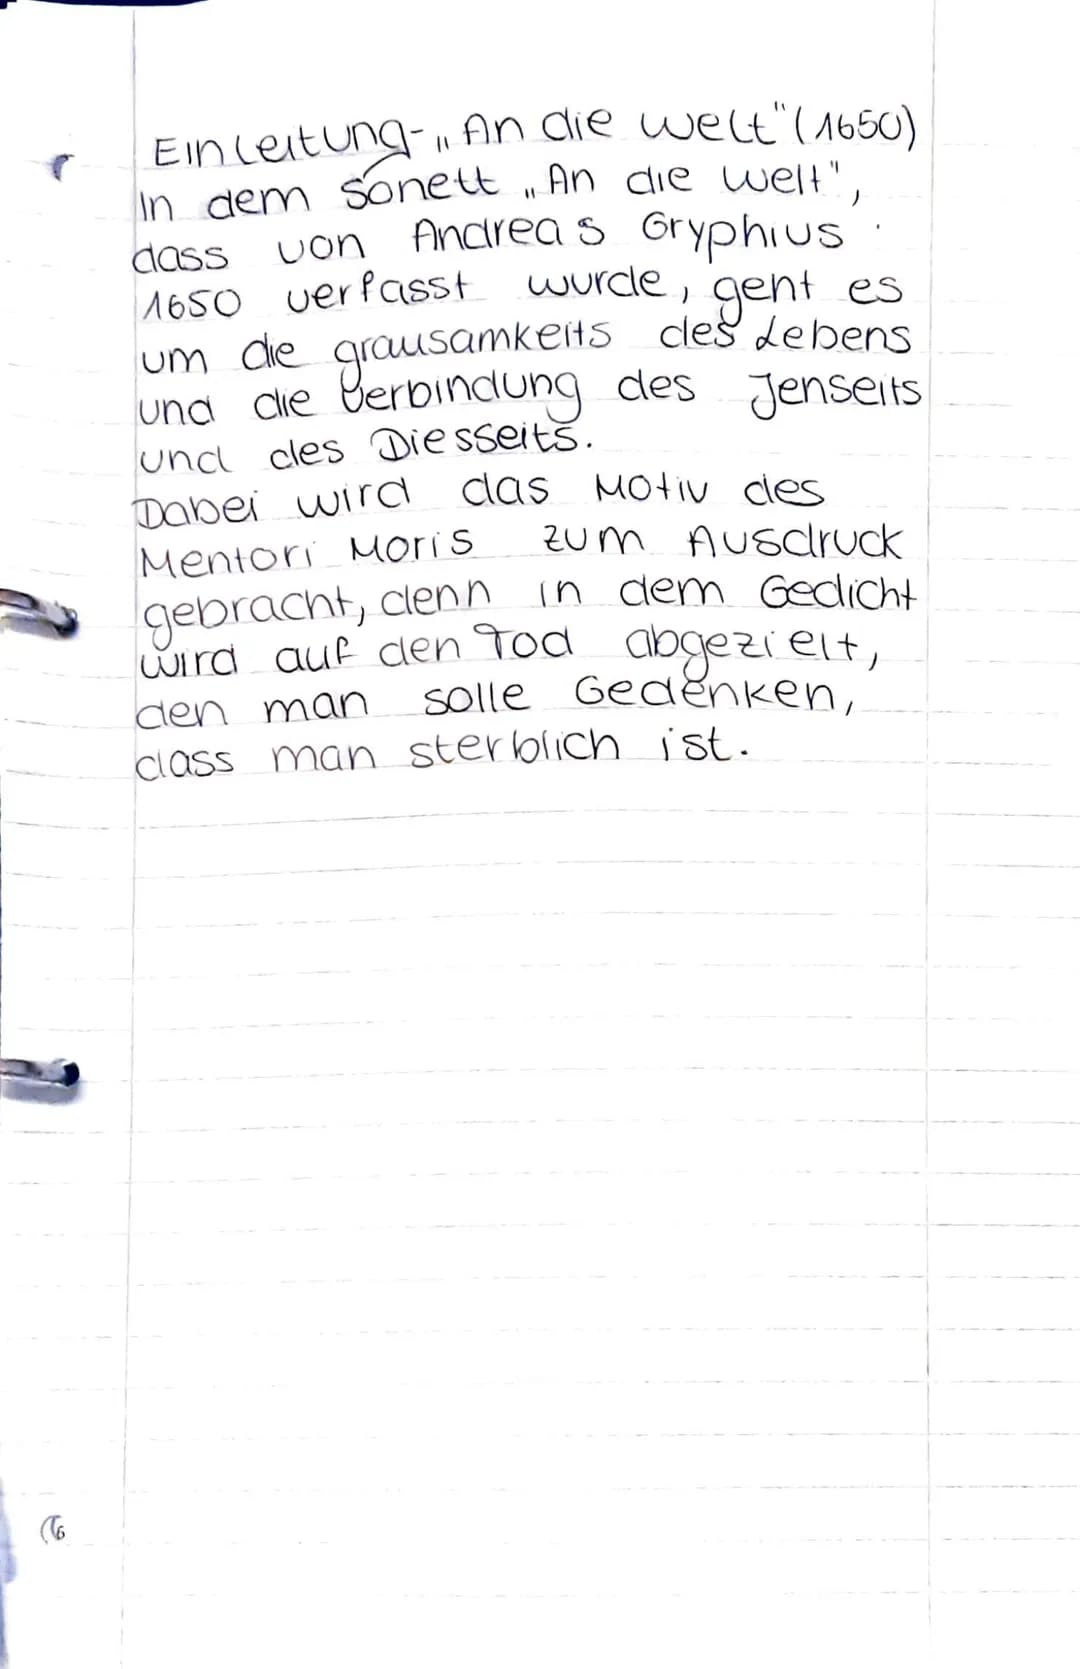 Einleitung - „An die Welt" (1650)
In dem Sonett „An die Welt",
dass von Andreas Gryphius
1650 verfasst wurde, geht es
um die grausamkeits des Lebens
und die Verbindung des Jenseits
und des Diesseits.
Dabei wird das Motiv des
Mentori Moris zum Ausdruck
gebracht, denn in dem Gedicht
wird auf den Tod abgezielt,
den man solle Gedenken,
dass man sterblich ist.